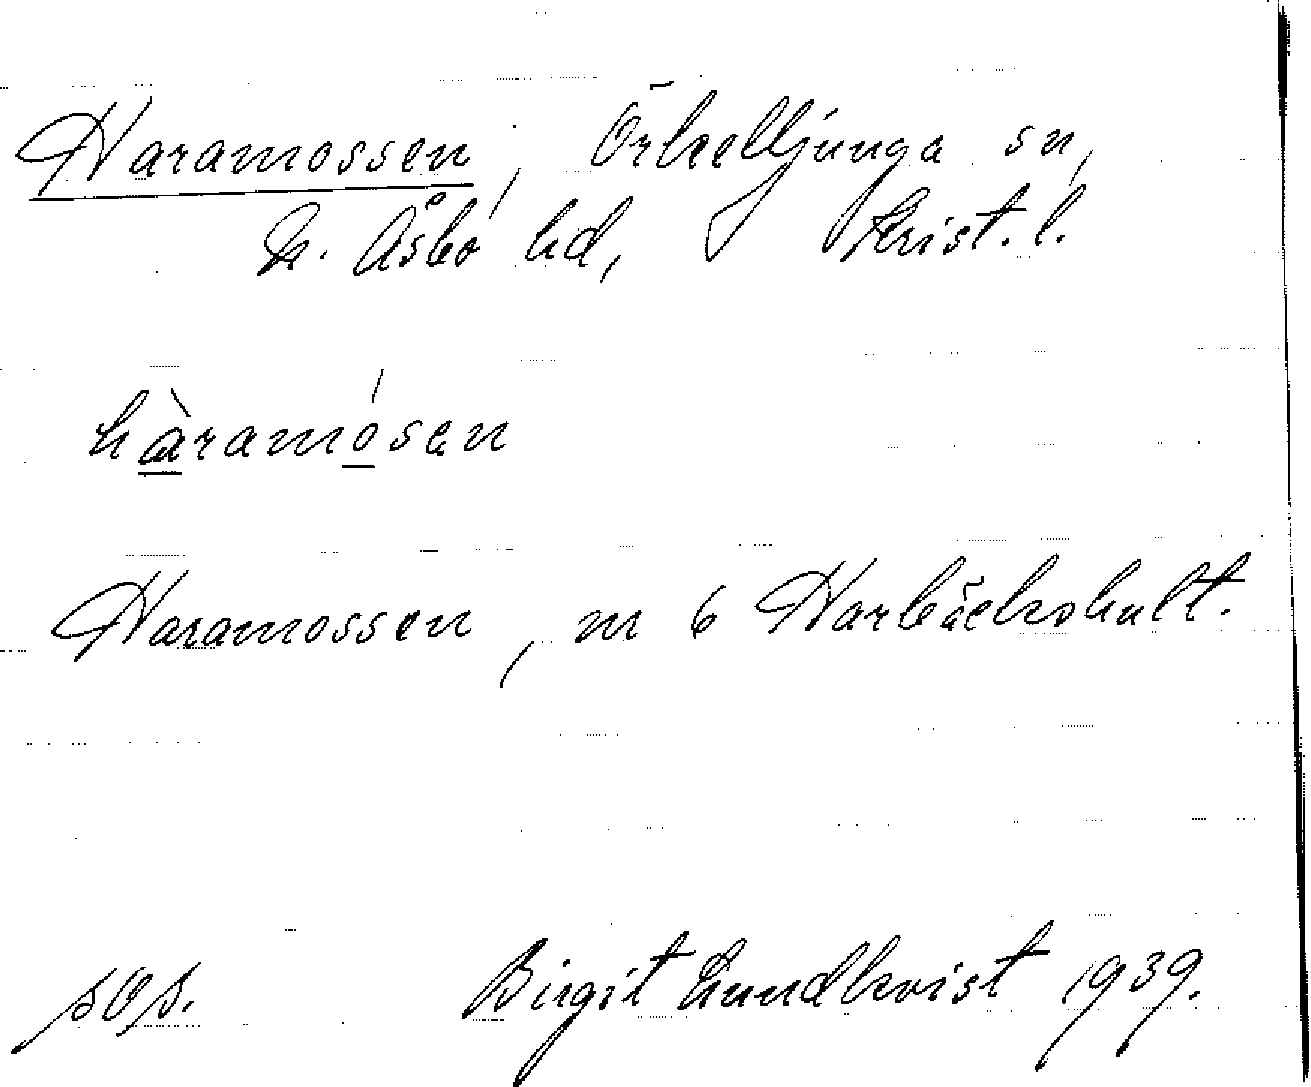 Haramossen, Örkelljunga sn,
N. Åsbo hd, Krist. l.
hàramósen
Haramossen, m 6 Harbäckshult.
sop. Birgit Lundkvist 1939.